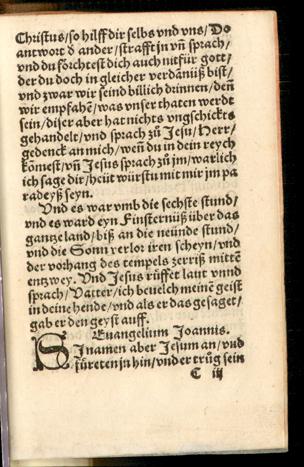 Christus/so hilff dir selbs vnd vns/Do
antwort d ander/strafft in vñ sprach/
vnd du förchtest dich auch nit für gott/
der du doch in gleicher verdãnüß bist/
vnd zwar wir seind billich drinnen/deñ
wir empfahẽ/was vnser thaten werdt
sein/diser aber hat nichts vngschickts
gehandelt/vnd sprach zũ Jesu/Herr/
gedenck an mich/weñ du in dein reych
kömest/vñ Jesus sprach zů jm/warlich
ich sage dir/heüt würstu mit mir jm pa
radeyß seyn.
Vnd es war vmb die sechste stund/
vnd es ward eyn Finsternüß über das
gantze land/biß an die neünde stund/
vnd die Sonn verlor iren scheyn/vnd
der vorhang des tempels zerriß mittẽ
entzwey. Vnd Jesus rüffet laut vnnd
sprach/Vatter/ich beuelch meinẽ geist
in deine hende/vnd als er das gesaget/
gab er den geyst auff.
Euangelium Joannis.
SJ namen aber Jesum an/vnd
füreten jn hin/vnd er trůg sein
C iij